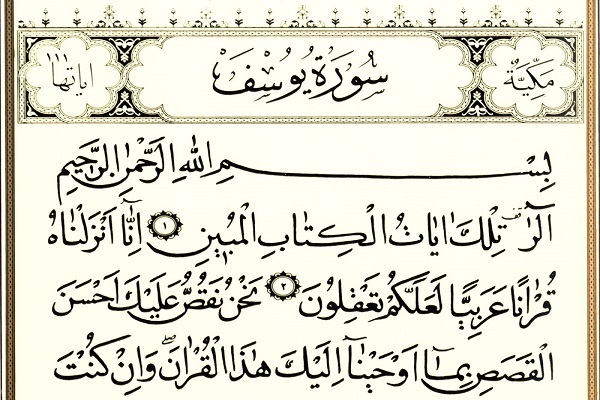 مَكِّيَّةٌ سُورَةُ يُوسُفَ اٰيَاتُهَا ١١١
بِسْمِ اللّٰهِ الرَّحْمٰنِ الرَّحِيمِ
الٓرٰ تِلْكَ اٰيَاتُ الْكِتَابِ الْمُبِينِ ۝١ اِنَّٓا اَنْزَلْنَاهُ
قُرْاٰنًا عَرَبِيًّا لَعَلَّكُمْ تَعْقِلُونَ ۝٢ نَحْنُ نَقُصُّ عَلَيْكَ اَحْسَنَ
الْقَصَصِ بِمَٓا اَوْحَيْنَٓا اِلَيْكَ هٰذَا الْقُرْاٰنَ وَاِنْ كُنْتَ